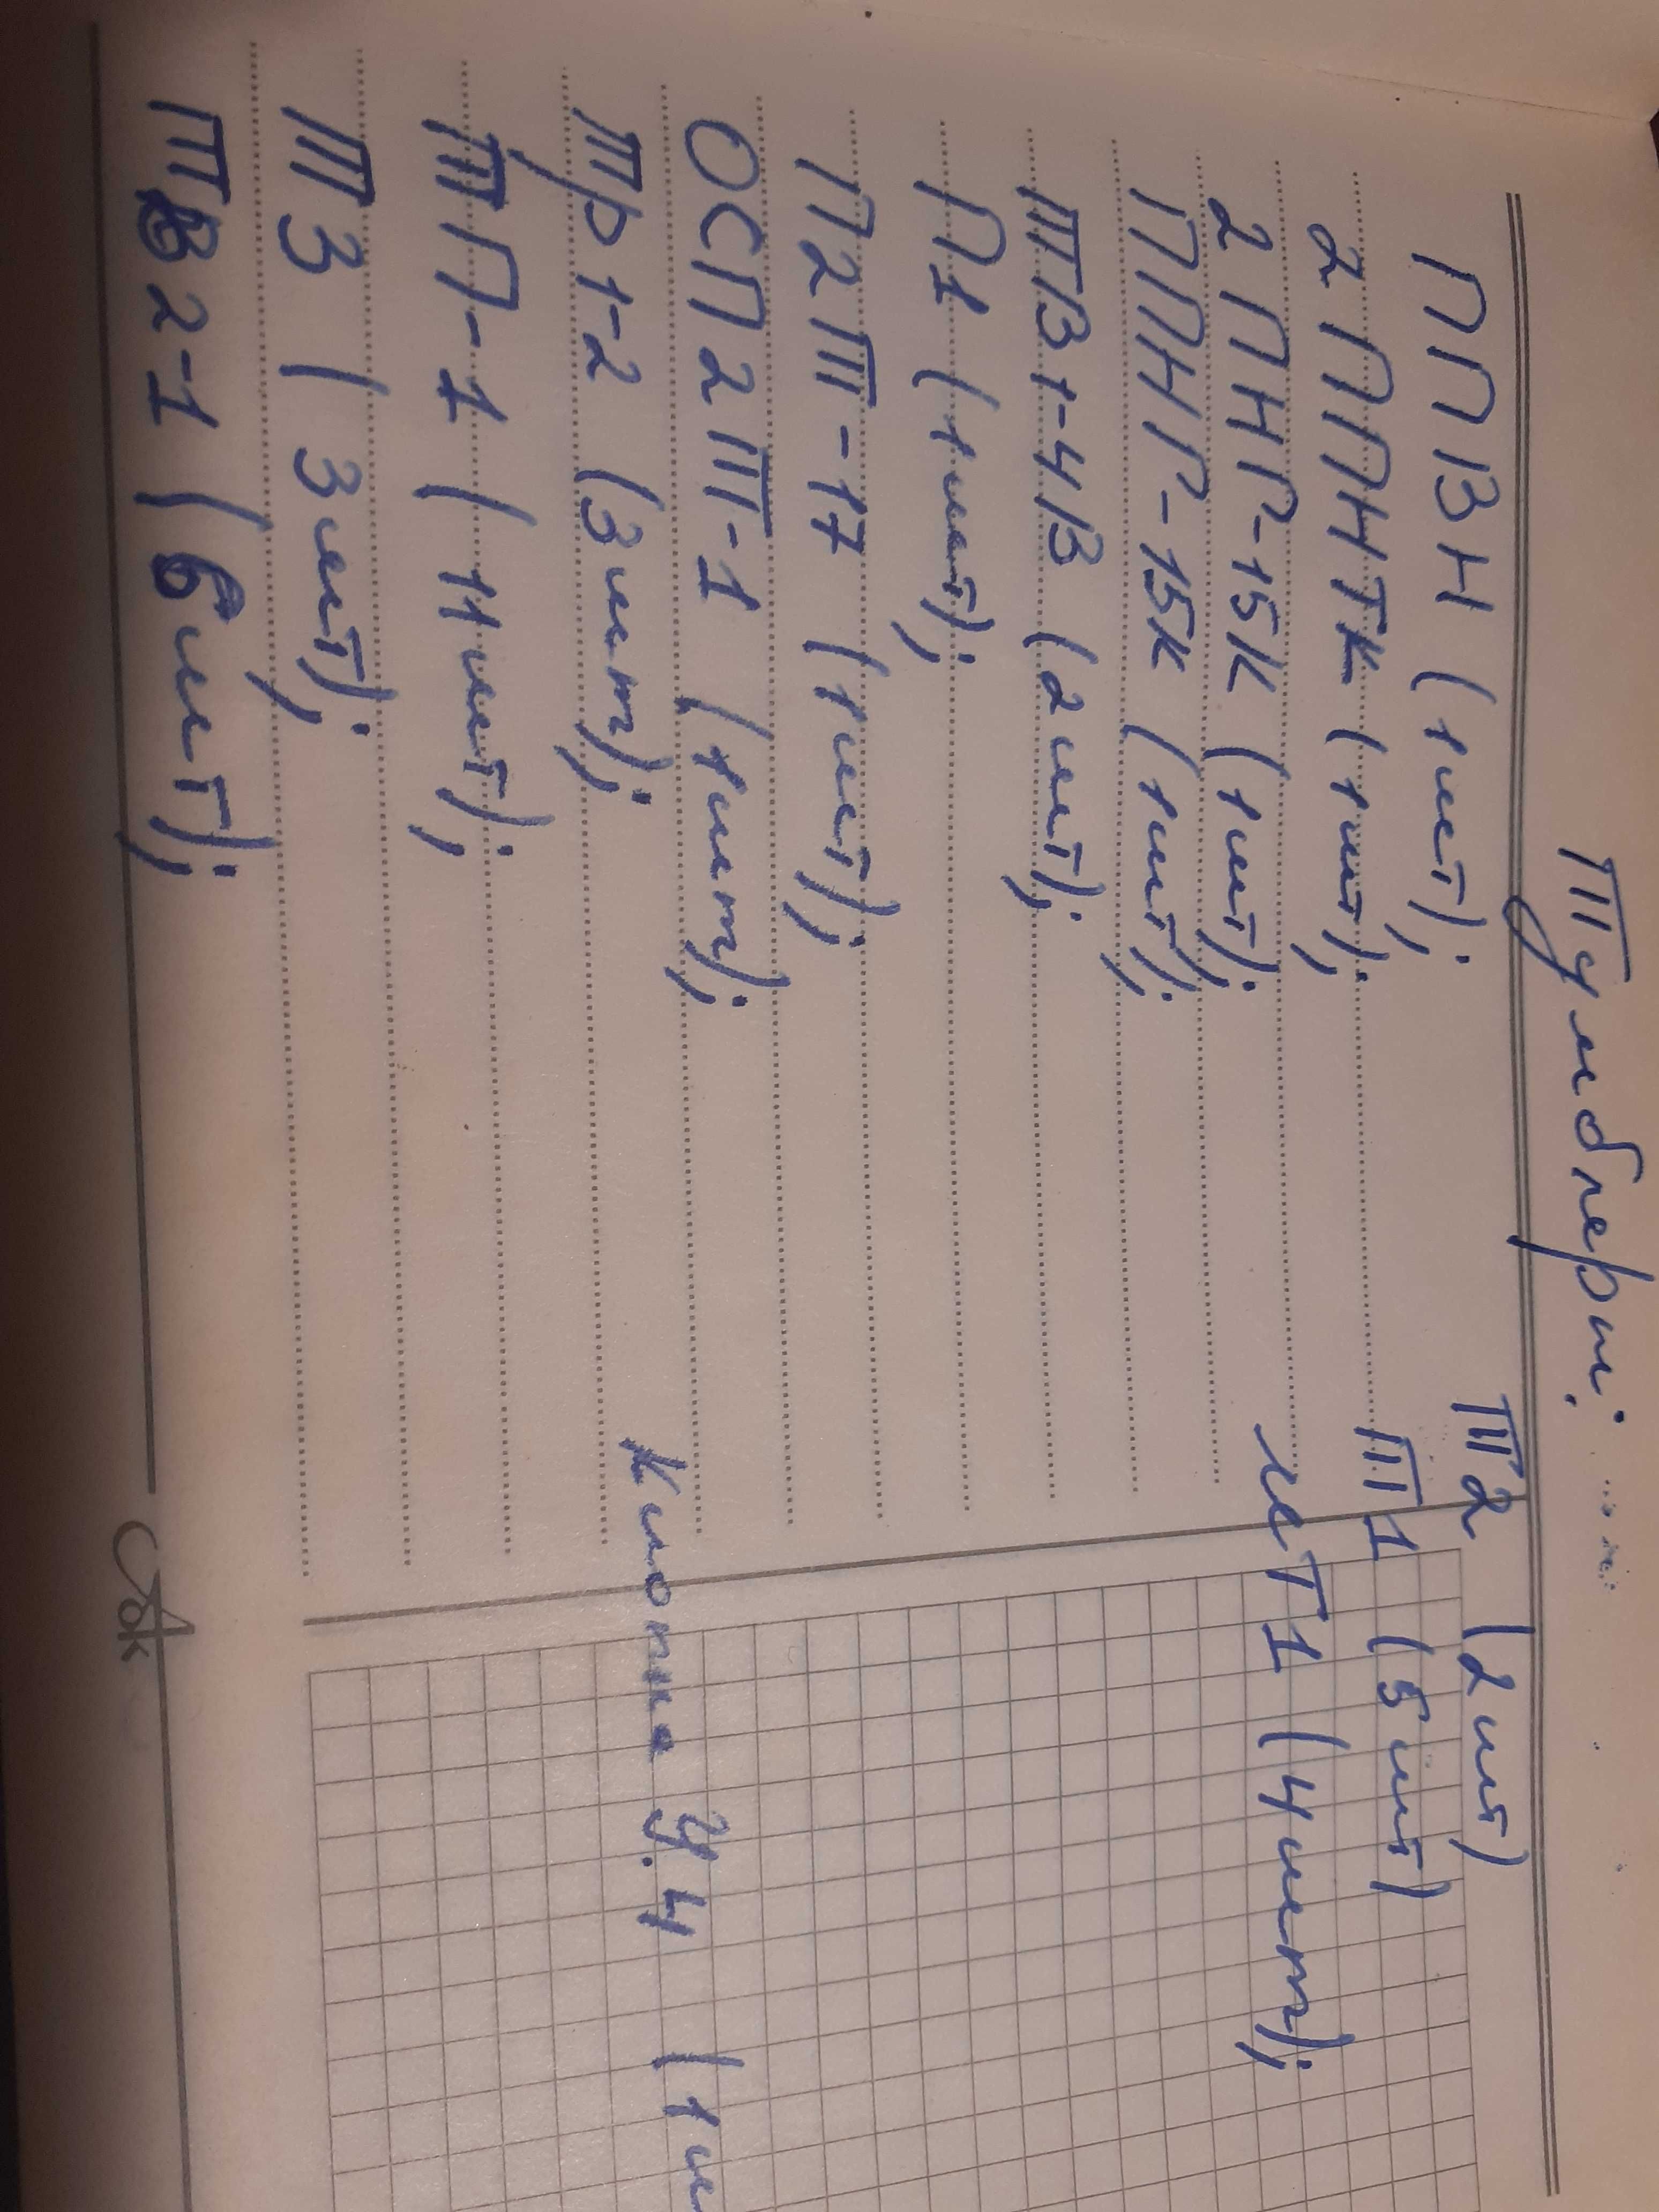 Тумблеры:
ППВН (1шт);
2 ППНТК (1шт);
2 ПНГ-15К (1шт);
ППНГ-15К (1шт);
ТВ1-4В (2шт);
П1 (1шт);
П2Т-17 (1шт);
ОСП2Т-1 (1шт);
тр1-2 (3шт);
ТП-1 (11шт);
Т3 (3шт);
ТВ2-1 (6шт);
Т2 (2шт)
Т1 (5шт)
МТ1 (4шт);
Кнопка У.4 (1ш